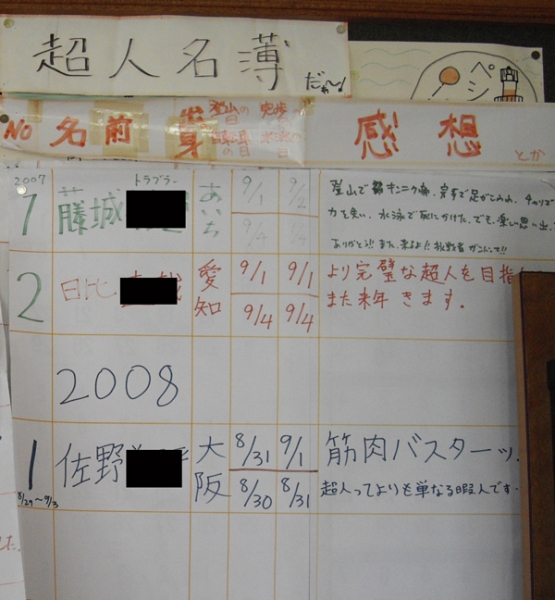 超人名簿
だぁ〜!
ペン
No 名前 出身 登山の日 完歩の日 感想
の日 の日
とか
2007
1 藤城 トラブラー あいち 9/1 9/2 登山で
9/4 9/4 力を失い、水泳で死にかけた。でも、楽しい思い出
ありがとう!!また、来るよ!!
2 日比 愛知 9/1 9/1 より完璧な超人を目指
9/4 9/4 また来年きます。
2008
1 佐野 大阪 8/31 9/1 筋肉バスターッ
8/29〜9/3 8/30 8/31 超人ってよりも単なる暇人です。